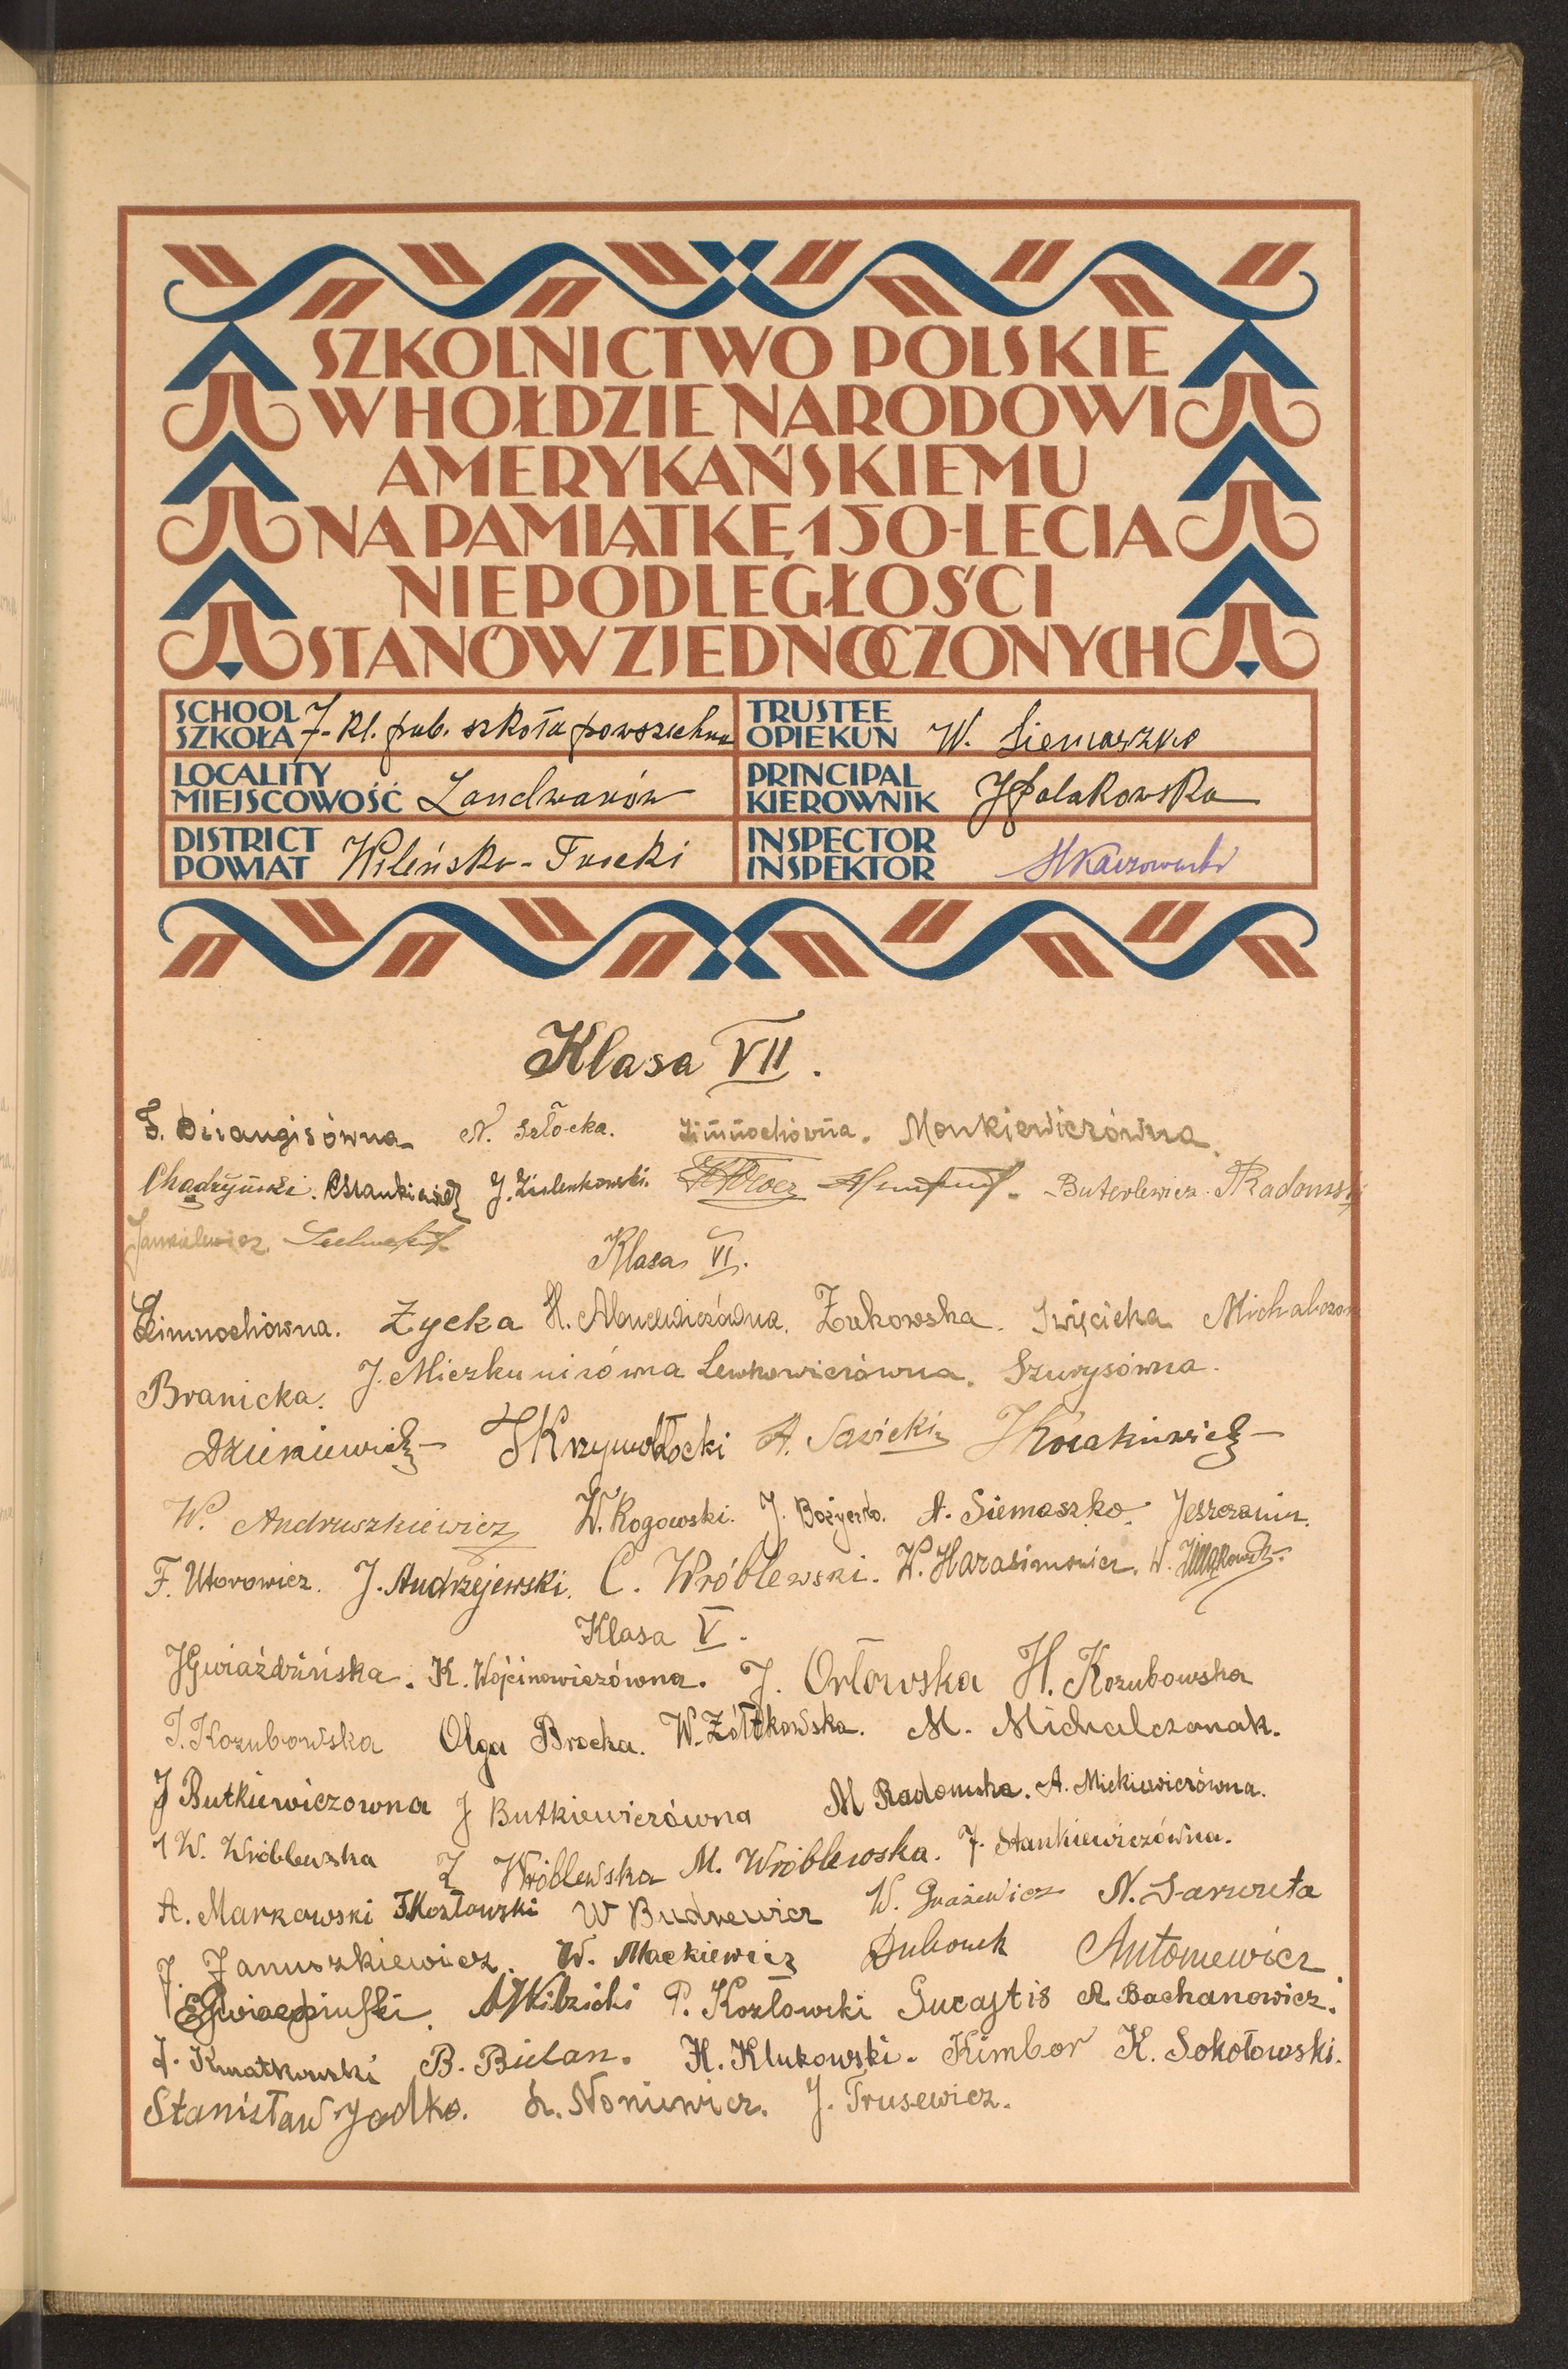 SZKOLNICTWO POLSKIE
W HOŁDZIE NARODOWI
AMERYKAŃSKIEMU
NA PAMIĄTKĘ 150-LECIA
NIEPODLEGŁOŚCI
STANÓW ZJEDNOCZONYCH
SCHOOL
SZKOŁA 7-kl. pub. szkoła powszechna
TRUSTEE
OPIEKUN W. Siemaszko
LOCALITY
MIEJSCOWOŚĆ Landwarów
PRINCIPAL
KIEROWNIK J Polakowska
DISTRICT
POWIAT Wileńsko-Trocki
INSPECTOR
INSPEKTOR
Klasa VII.
N. Szłocka. Zimnochówna. Monkiewiczówna.
Chądzyński. J. Zielenkowski. Buterlewicz. Radomski
Klasa VI.
Zimnochowna. Życka Żukowska. Święcicka
Branicka. J. Mieszkunisówna Lewkowiczówna. Szurysówna.
Dzieniewicz Krzywobłocki A. Sawicki
W. Andruszkiewicz W. Rogowski. J. Bożyczko. A. Siemaszko.
F. Utorowicz. J. Andrzejewski. C. Wróblewski. W. Harasimowicz.
Klasa V.
J Gwiaździńska. K. Wójcinowiczówna. J. Orłowska H. Kozubowska
J. Kozubowska Olga Brocka. W. Żółtkowska. M. Michalczonak.
J Butkiewiczowna J Butkiewiczówna M Radomska. A. Mickiewiczówna.
W. Wróblewska Z Wróblewska M. Wróblewska. J. Stankiewiczówna.
A. Markowski F Kozłowski W Budrewicz W. Grażewicz N. Sarwuta
J. Januszkiewicz. W. Mackiewicz Dubowik Antoniewicz
P. Kozłowski Gucajtis A Bachanowicz.
J. Kwiatkowski B. Bielan. H. Klukowski. Kimbor K. Sokołowski.
Stanisław Jodko. L. Noniewicz. J. Trusewicz.